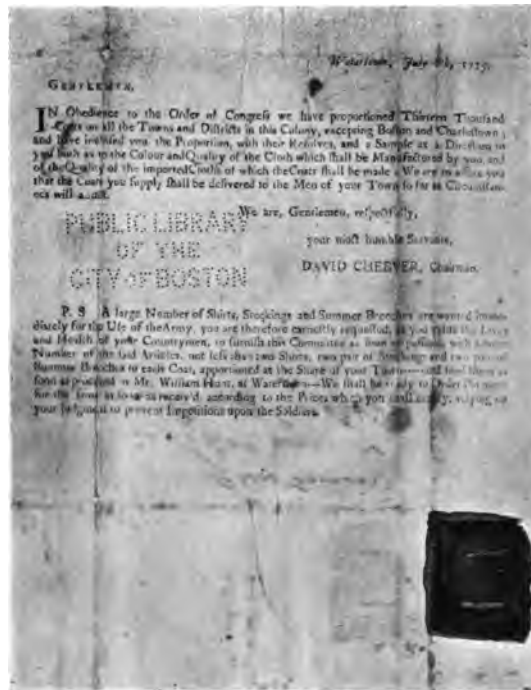 Watertown, July 1775.
GENTLEMEN,
IN Obedience to the Order of Congreſs we have proportioned Thirteen Thouſand
Coats on all the Towns and Diſtricts in this Colony, excepting Boſton and Charleſtown;
and have incloſed you the Proportion, with their Reſolves, and a Sample as a Direction to
you both as to the Colour and Quality of the Cloth which ſhall be Manufactured by you and
of the Quality of the imported Cloths of which the Coats ſhall be made. We are to aſſure you
that the Coats you ſupply ſhall be delivered to the Men of your Town ſo far as Circumſtan-
ces will admit.
We are, Gentlemen, reſpectfully,
PUBLIC LIBRARY
OF THE
CITY OF BOSTON
your moſt humble Servants,
DAVID CHEEVER, Chairman.
P. S. A large Number of Shirts, Stockings and Summer Breeches are wanted imme-
diately for the Uſe of the Army, you are therefore earneſtly requeſted, as you value the Lives
and Health of your Countrymen, to furniſh this Committee as ſoon as poſſible with
Number of the ſaid Articles, not leſs than two Shirts, two pair of Stockings and two pair of
Summer Breeches to each Coat, apportioned as the Share of your Town and ſend them as
ſoon as poſſible to Mr. William Hunt, at Watertown We ſhall be ready to Order Payment
for the ſame as ſoon as received, according to the Prices which you ſhall relying on
your Judgment to prevent Impoſitions upon the Soldiers.